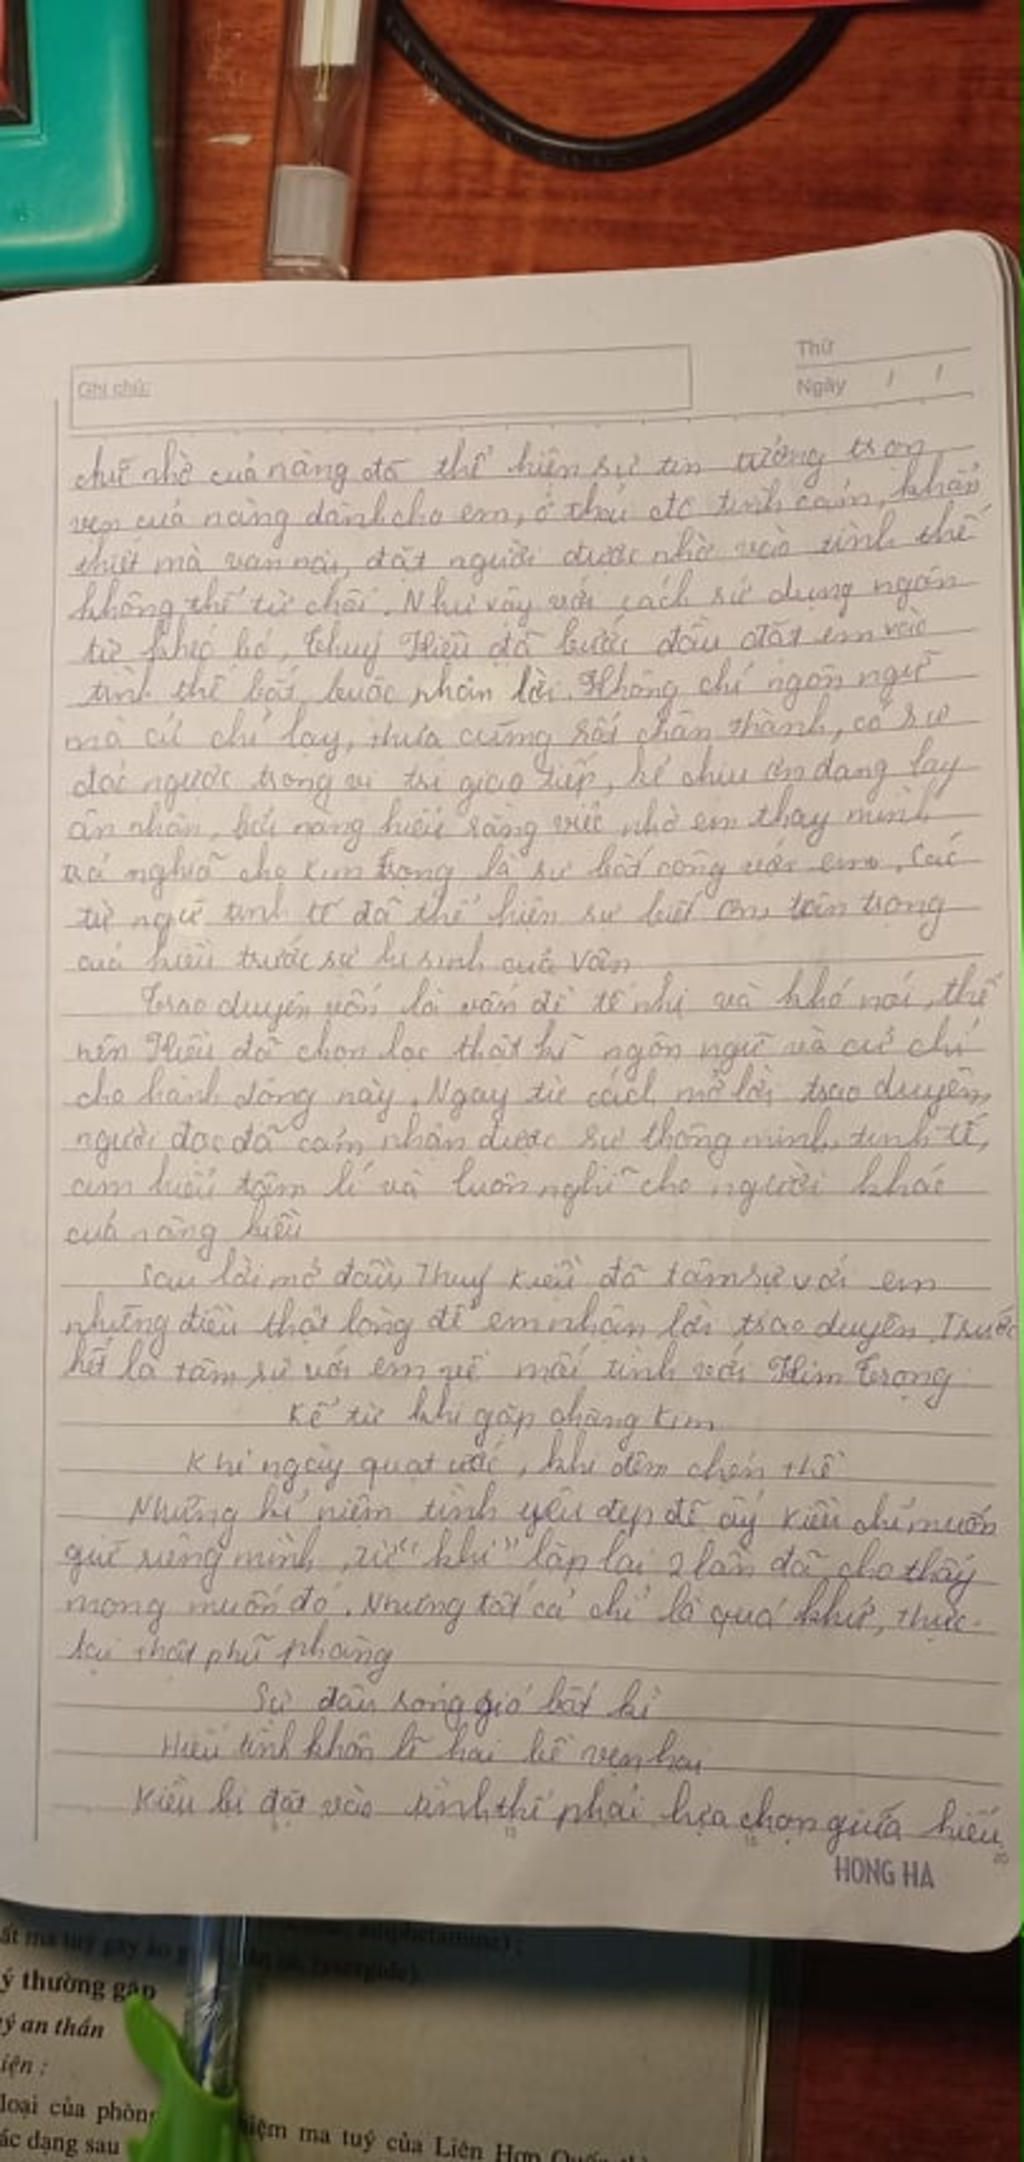 Thứ
Ghi chú:
Ngày / /
chữ nhờ của nàng đã thể hiện sự tin tưởng trọn
vẹn của nàng dành cho em, ở thái độ tình cảm, khẩn
thiết mà van nài, đặt người được nhờ vào tình thế
không thể từ chối. Như vậy với cách sử dụng ngôn
từ khéo léo, Thuý Kiều đã bước đầu đặt em vào
tình thế bắt buộc nhận lời. Không chỉ ngôn ngữ
mà cử chỉ lạy, thưa cũng rất chân thành, có sự
đảo ngược trong vị trí giao tiếp, kẻ chịu ơn đang lạy
ân nhân, bởi nàng hiểu rằng việc nhờ em thay mình
trả nghĩa cho Kim Trọng là sự bất công với em. Các
từ ngữ tinh tế đã thể hiện sự biết ơn, trân trọng
của kiều trước sự hi sinh của Vân
Trao duyên vốn là vấn đề tế nhị và khó nói, thế
nên Kiều đã chọn lọc thật kĩ ngôn ngữ và cử chỉ
cho hành động này. Ngay từ cách mở lời trao duyên,
người đọc đã cảm nhận được sự thông minh, tinh tế,
am hiểu tâm lí và luôn nghĩ cho người khác
của nàng kiều
Sau lời mở đầu, Thuý Kiều đã tâm sự với em
những điều thật lòng để em nhận lời trao duyên. Trước
hết là tâm sự với em về mối tình với Kim Trọng
Kể từ khi gặp chàng Kim
Khi ngày quạt ước, khi đêm chén thề
Những kỉ niệm tình yêu đẹp đẽ ấy Kiều chỉ muốn
giữ riêng mình, từ "khi" lặp lại 2 lần đã cho thấy
mong muốn đó. Nhưng tất cả chỉ là quá khứ, thực
tại thật phũ phàng
Sự đâu sóng gió bất kì
Hiếu tình khôn lẽ hai bề vẹn hai
Kiều bị đặt vào tình thế phải lựa chọn giữa hiếu
HONG HA
ý thường gặp
ý an thần
iện :
loại của phòng iệm ma tuý của Liên Hợp Quốc
ác dạng sau